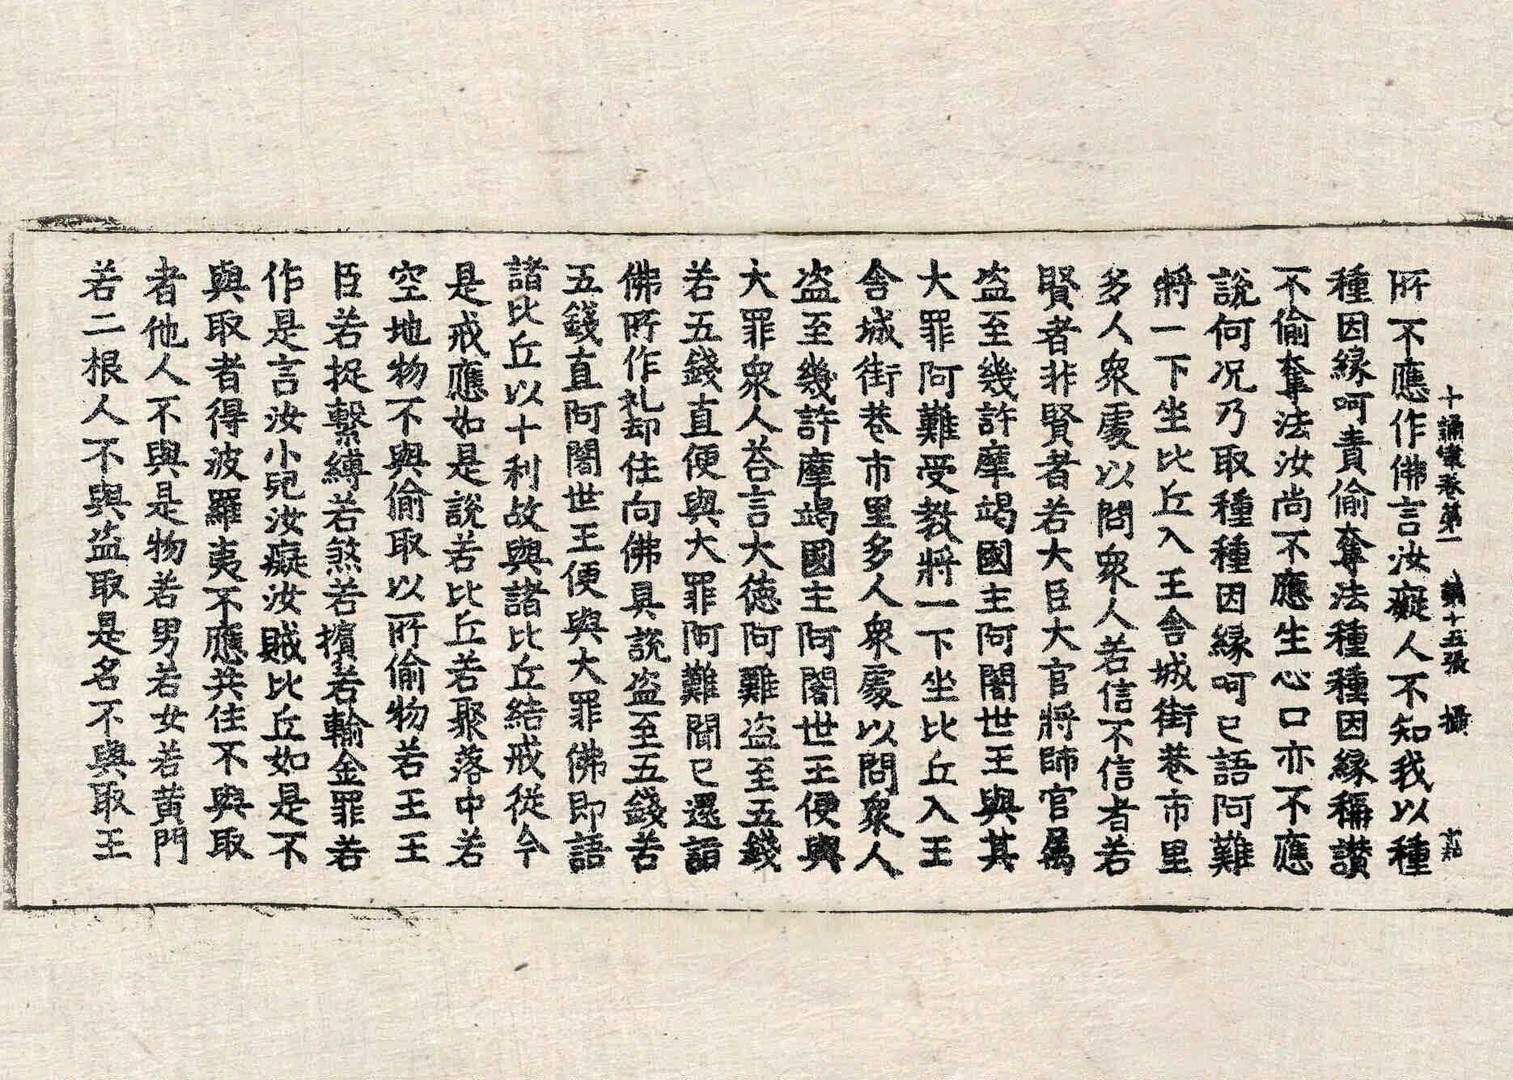 十誦律卷第一　第十五張　攝
所不應作佛言汝癡人不知我以種
種因縁呵責偷奪法種種因縁稱讃
不偷奪法汝尚不應生心口亦不應
說何況乃取種種因縁呵已語阿難
將一下坐比丘入王舍城街巷市里
多人衆處以問衆人若信不信者若
賢者非賢者若大臣大官將帥官属
盗至幾許摩竭國主阿闍世王與其
大罪阿難受教將一下坐比丘入王
舍城街巷市里多人衆處以問衆人
盗至幾許摩竭國主阿闍世王便與
大罪衆人荅言大徳阿難盗至五錢
若五錢直便與大罪阿難聞已還詣
佛所作礼却住向佛具說盗至五錢若
五錢直阿闍世王便與大罪佛即語
諸比丘以十利故與諸比丘結戒從今
是戒應如是說若比丘若聚落中若
空地物不與偷取以所偷物若王王
臣若捉繫縛若煞若擯若輸金罪若
作是言汝小兒汝癡汝賊比丘如是不
與取者得波羅夷不應共住不與取
者他人不與是物若男若女若黄門
若二根人不與盗取是名不與取王